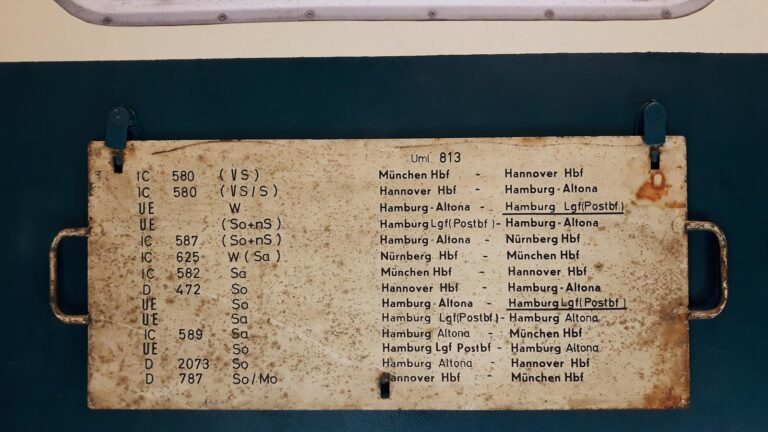 Uml 813
IC 580 (VS) München Hbf - Hannover Hbf
IC 580 (VS/S) Hannover Hbf - Hamburg-Altona
UE W Hamburg-Altona - Hamburg Lgf(Postbf.)
UE (So+nS) Hamburg Lgf(Postbf)- Hamburg-Altona
IC 587 (So+nS) Hamburg-Altona - Nürnberg Hbf
IC 625 W(Sa) Nürnberg Hbf - München Hbf
IC 582 Sa München Hbf - Hannover Hbf
D 472 So Hannover Hbf - Hamburg-Altona
UE So Hamburg-Altona - Hamburg Lgf(Postbf)
UE Sa Hamburg Lgf(Postbf)- Hamburg Altona
IC 589 Sa Hamburg Altona - München Hbf
UE So Hamburg Lgf Postbf - Hamburg Altona
D 2073 So Hamburg Altona - Hannover Hbf
D 787 So/Mo Hannover Hbf - München Hbf